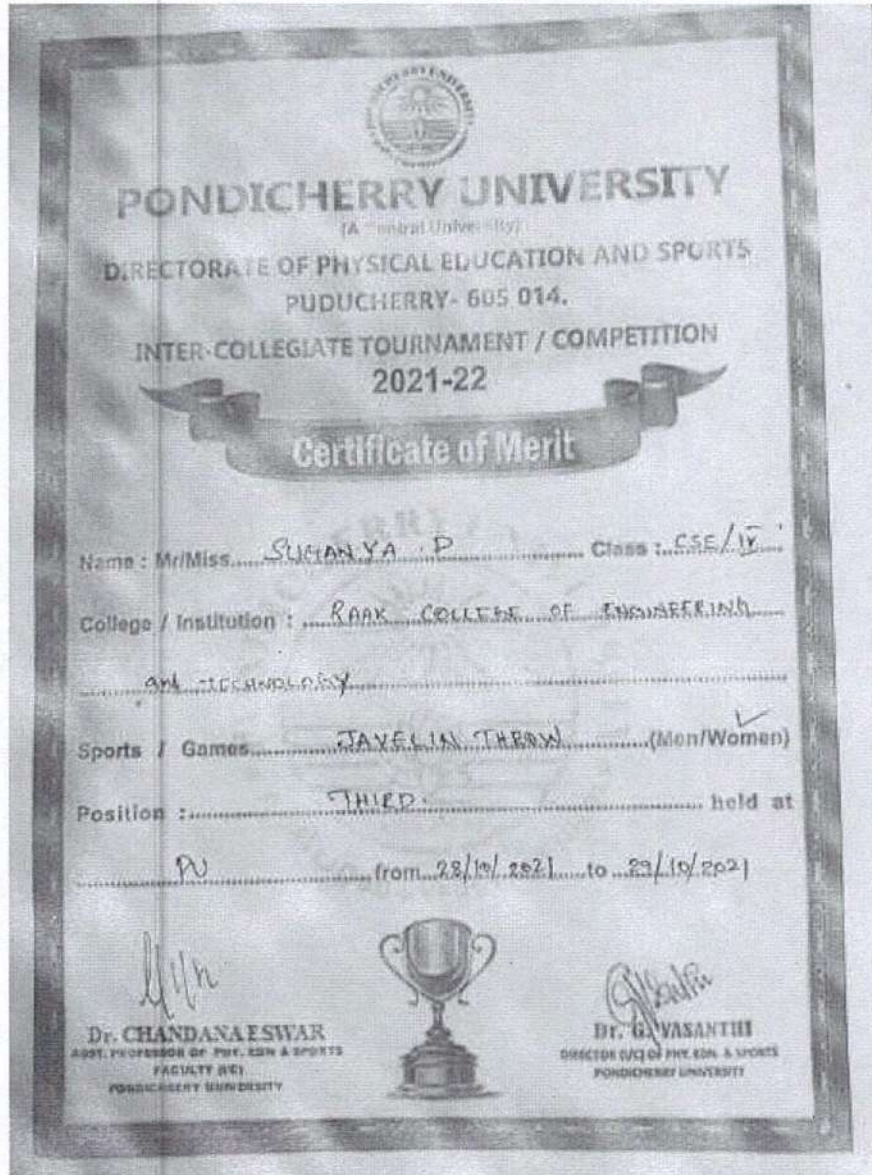 PONDICHERRY UNIVERSITY
PONDICHERRY UNIVERSITY
(A Central University)
DIRECTORATE OF PHYSICAL EDUCATION AND SPORTS
PUDUCHERRY- 605 014.
INTER-COLLEGIATE TOURNAMENT / COMPETITION
2021-22
Certificate of Merit
Name : Mr/Miss.....SUGANYA . P.....Class :..CSE/IV..
College / Institution : ....RAAK COLLEGE OF ENGINEERING....
and TECHNOLOGY
Sports / Games............JAVELIN THROW............(Men/Women)
Position :............THIRD.............held at
PU............(from..28/10/2021.....to...29/10/2021
Dr. CHANDANA ESWAR
ASST. PROFESSOR OF PHY. EDN & SPORTS
FACULTY (I/C)
PONDICHERRY UNIVERSITY
Dr. G. VASANTHI
DIRECTOR (I/C) OF PHY. EDN. & SPORTS
PONDICHERRY UNIVERSITY